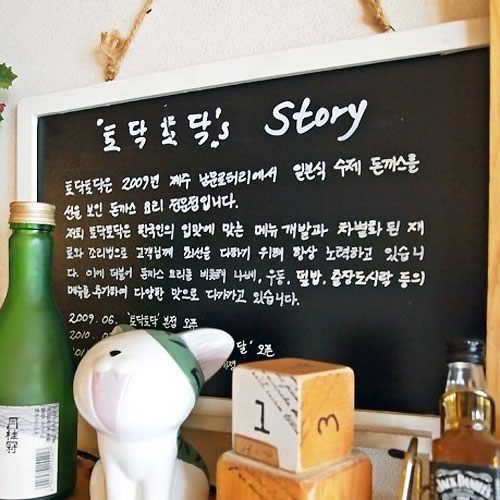 '토닥토닥's Story
토닥토닥은 2009년 제주 남문로터리에서 일본식 수제 돈까스를
선을 보인 돈까스 요리 전문점입니다.
저희 토닥토닥은 한국인의 입맛에 맞는 메뉴개발과 차별화된 재
료와 조리법으로 고객님께 최선을 다하기 위해 항상 노력하고 있습니
다. 이에 더불어 돈까스 요리를 비롯해 나베, 우동, 덮밥, 출장도시락 등의
메뉴를 추가하여 다양한 맛으로 다가가고 있습니다.
2009. 06. '토닥토닥' 본점 오픈
2010. 0
달' 오픈
月桂冠
1
3
JACK DANIEL